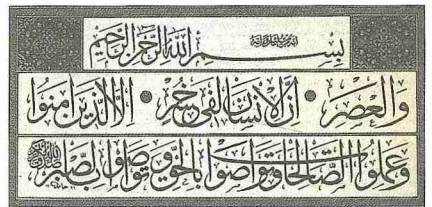 بِسْمِ اللّٰهِ الرَّحْمٰنِ الرَّحِيْمِ
وَالْعَصْرِ • اِنَّ الْاِنْسَانَ لَفِيْ خُسْرٍ • اِلَّا الَّذِيْنَ اٰمَنُوْا
وَعَمِلُوا الصّٰلِحٰتِ وَتَوَاصَوْا بِالْحَقِّ وَتَوَاصَوْا بِالصَّبْرِ